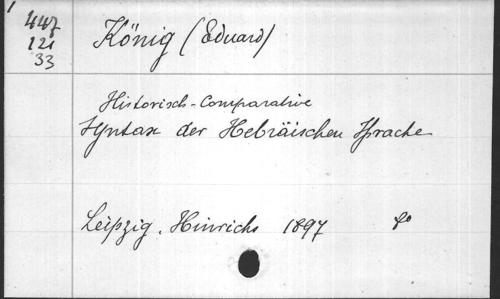 447
121
33
König (Eduard)
Historisch-Comparative
Syntax der Hebräischen Sprache
Leipzig, Hinrichs 1897 8º